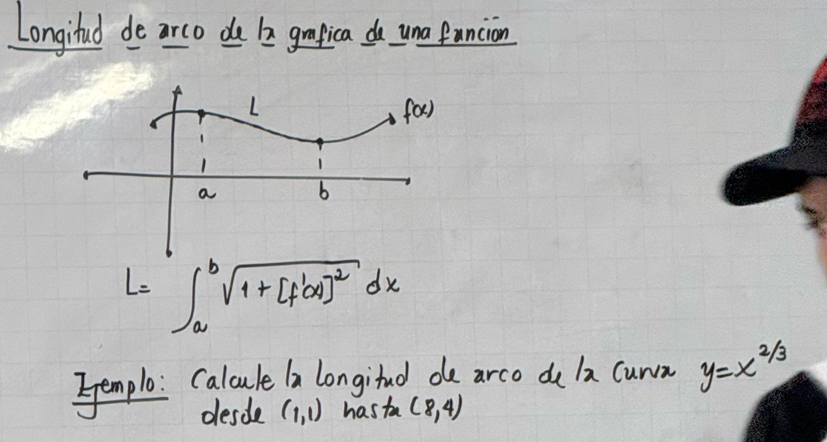 Longitud de arco de la grafica de una función
L
f(x)
a
b
L= ∫ₐᵇ √(1 + [f'(x)]²) dx
Ejemplo: Calcule la longitud de arco de la curva y=x^{2/3}
desde (1,1) hasta (8,4)